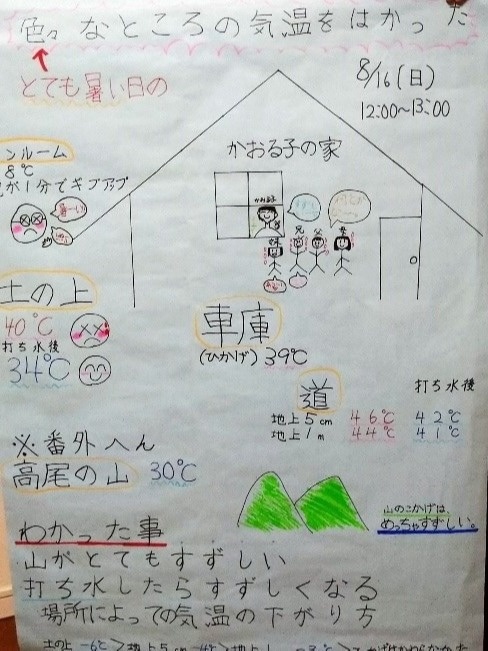 色々なところの気温をはかった
とても暑い日の
8/16(日)
12:00〜13:00
かおる子の家
ンルーム
8℃
が1分でギブアプ
暑〜い
かおる子
妹
兄
父
母
土の上
40℃
打ち水後
34℃
車庫
(ひかげ) 39℃
道
打ち水後
地上5cm 46℃ 42℃
地上1m 44℃ 41℃
※番外へん
高尾の山 30℃
山のこかげは、
めっちゃすずしい。
わかった事
山がとてもすずしい
打ち水したらすずしくなる
場所によっての気温の下がり方
土の上 -6℃ > 地上5cm -4℃ > 地上1m -3℃ >